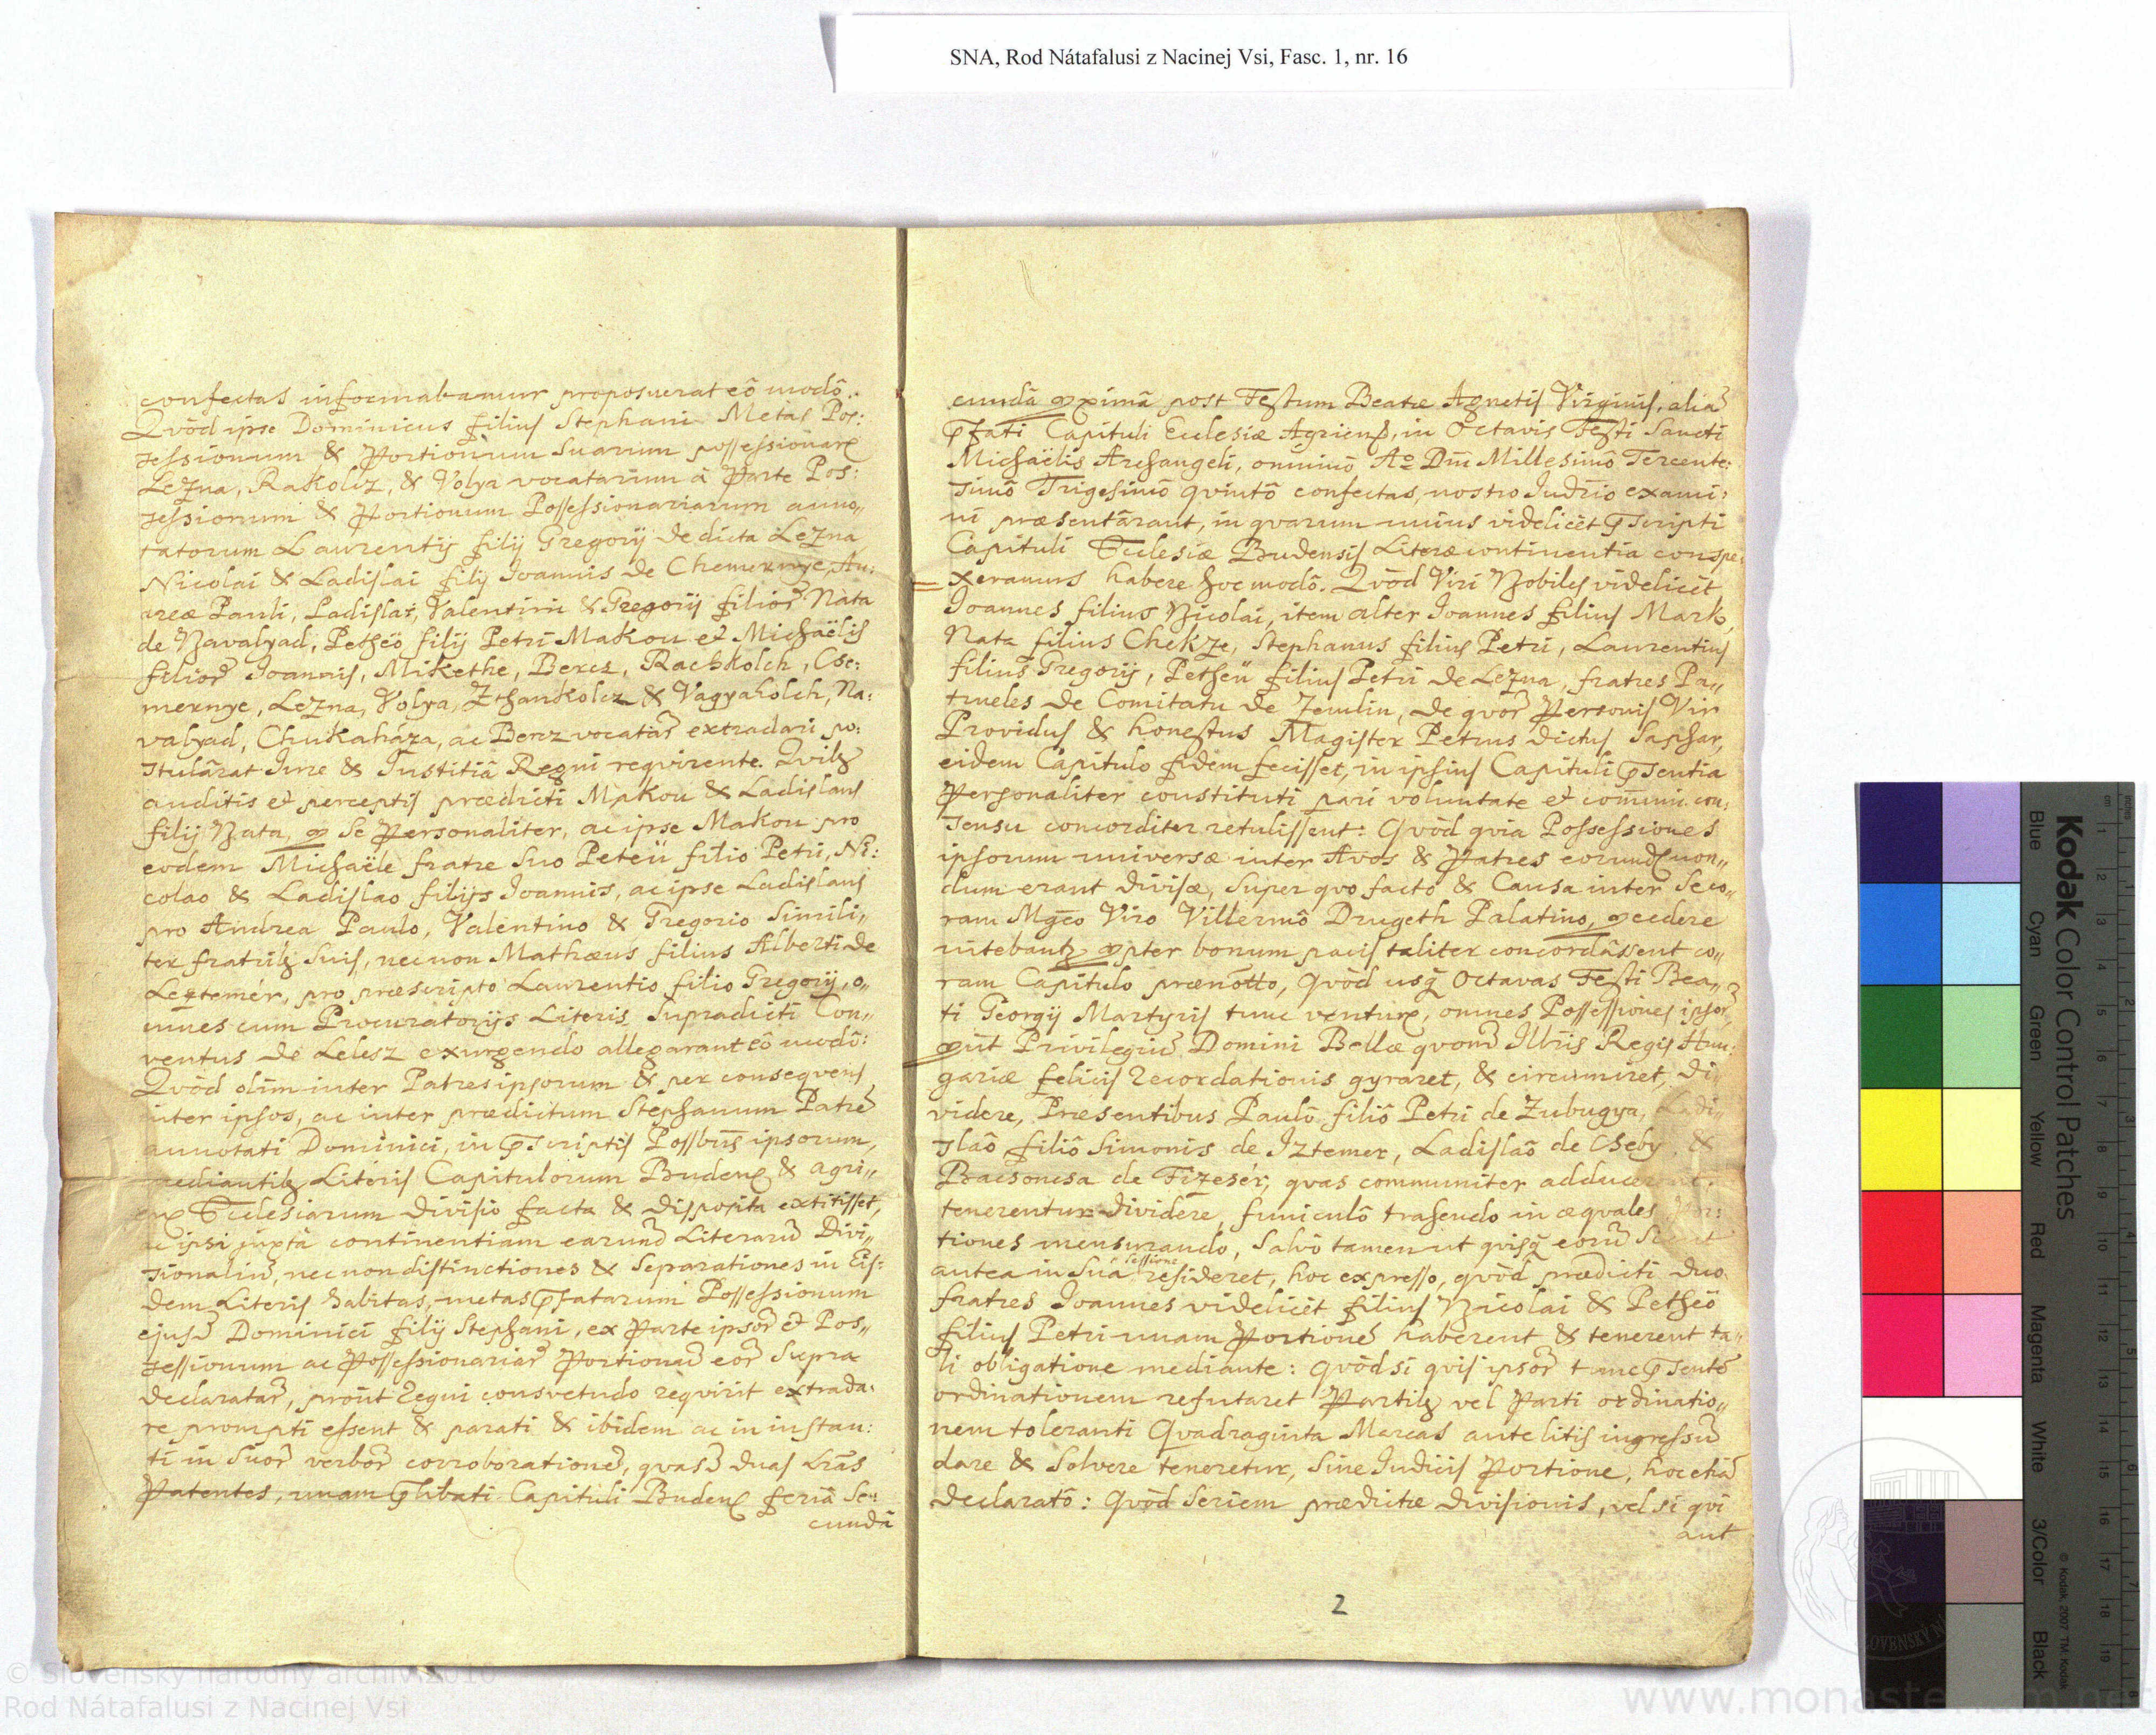 SNA, Rod Nátafalusi z Nacinej Vsi, Fasc. 1, nr. 16
confectas informabamur proposuerat eô modô.
Qvòd ipse Dominicus filius Stephani Metas Pos:
sessionum & Portionum Suarum possessionarx
Lezna, Rakolcz, & Volya vocatarum à Parte Pos:
sessionum & Portionum Possessionariarum anno„
tatorum Laurentij filij Gregorij de dicta Lezna
Nicolai & Ladislai filij Joannis de Chemernye, An:
dreæ Pauli, Ladislai, Valentini & Gregorij filior̃ Nata
de Navalyad, Petheö filij Petri Makou et Michaëlis
filior̃ Joannis, Mikethe, Bercz, Rachkolch, Cse:
mernye, Lezna, Volya, Zthankolcz & Vagyakolch, Na:
valyad, Chukaháza, ac Bercz vocatar̃ extradari po:
stulârat Jure & Justitiâ Regni reqvirente. Qvibꝫ
auditis et perceptis prædicti Makou & Ladislaus
filij Nata, ꝓ Se Personaliter, ac ipse Makou pro
eodem Michaële fratre Suo Peteü filio Petri, Ni:
colao & Ladislao filijs Joannis, ac ipse Ladislaus
pro Andrea Paulo, Valentino & Gregorio Simili„
ter fratribꝫ Suis, necnon Mathæus filius Alberti de
Leztemér, pro præscripto Laurentio filio Gregorij, o„
mnes cum Procuratorijs Literis Supradicti Con„
ventus de Lelesz exurgendo allegarant eô modô:
Qvòd olim inter Patres ipsorum & per conseqvens
inter ipsos, ac inter prædictum Stephanum Patrẽ
annotati Dominici, in ꝑscriptis Possbus̃ ipsorum,
mediantibꝫ Literis Capitulorum Budenx & agri„
enx Ecclesiarum divisio facta & disposita extitisset,
ac ipsi juxta continentiam earund̃ Literarũ Divi„
sionaliũ, necnon distinctiones & Separationes in Eis:
dem Literis habitas, metas ꝑfatarum Possessionum
ejusd̃ Dominici filij Stephani, ex Parte ipsor̃ et Pos„
sessionum ac Possessionariar̃ Portionũ eor̃ Supra
declaratar̃, proùt Regni consvetudo reqvirit extrada:
re prompti essent & parati & ibidem ac in instan:
ti in Suor̃ verbor̃ corroborationẽ, qvasd̃ duas Lrãs
Patentes, unam ꝑlibati Capituli Budenx feriâ Se:
cundâ
cundâ ꝓximâ post Festum Beatæ Agnetis Virginis, aliã
ꝑfati Capituli Ecclesiæ Agriens, in Octavis Festi Sancti
Michaëlis Archangeli, omninò Aͦ Dñi Millesimô Tercente:
simô Trigesimô qvintô confectas, nostro Judrio exami:
ni præsentârant, in qvarum unius videlicèt ꝑscripti
Capituli Ecclesiæ Budensis Literæ continentia conspe:
xeramus habere hoc modô. Qvòd Viri Nobiles videlicèt
Joannes filius Nicolai, item alter Joannes filius Mark,
Nata filius Chekze, Stephanus filius Petri, Laurentius
filius Gregorij, Petheü filius Petri de Lezna, fratres Pa„
trueles de Comitatu de Zemlin, de qvor̃ Personis Vir
Providus & honestus Magister Petrus dictus Saphar,
eidem Capitulo fidem fecisset, in ipsius Capituli ꝑsentia
Personaliter constituti pari voluntate et com̃uni con:
sensu concorditer retulissent: Qvòd qvia Possessiones
ipsorum universæ inter Avos & Patres eorund non„
dum erant divisæ, Super qvo facto & Causa inter Se co„
ram Mgco Viro Villermô Drugeth Palatino, ꝓcedere
nitebantꝫ ꝓpter bonum pacis taliter concordâssent co„
ram Capitulo prænotto, Qvòd usqꝫ Octavas Festi Bea„
ti Georgij Martyris tunc venturx, omnes Possessiones ipsor̃
ꝓut Privilegiũ Domini Bellæ qvond̃ Illris Regis Hun:
gariæ felicis recordationis gyraret, & circumiret, di„
videre, Præsentibus Paulô filiô Petri de Zubugya, Ladi„
slaô filiô Simonis de Iztemer, Ladislaô de Cheby &
Bacsoncsa de Fizesér, qvas communiter
tenerentur dividere, funiculô trahendo in æqvales Por:
tiones mensurando, Salvô tamen ut qvisqꝫ eorũ
antea in Suâ Sessione resideret, hoc expresso, qvòd prædicti duo
fratres Joannes videlicèt filius Nicolai & Petheö
filius Petri unam Portionẽ haberent & tenerent ta„
li obligatione mediante: Qvòd si qvis ipsor̃ tunc ꝑsentẽ
ordinationem refutaret Partibꝫ vel Parti ordinatio„
nem toleranti Qvadraginta Marcas ante litis ingressũ
dare & Solvere teneretur, Sine Judicis Portione, hoc etiã
declaratô: Qvòd Seriem prædictæ divisionis, vel si qvi
aut
2
Kodak Color Control Patches
Blue Cyan Green Yellow Red Magenta White 3/Color Black
© Kodak, 2007 TM: Kodak
© Slovenský národný archív 2010
Rod Nátafalusi z Nacinej Vsi
www.monasterium.net